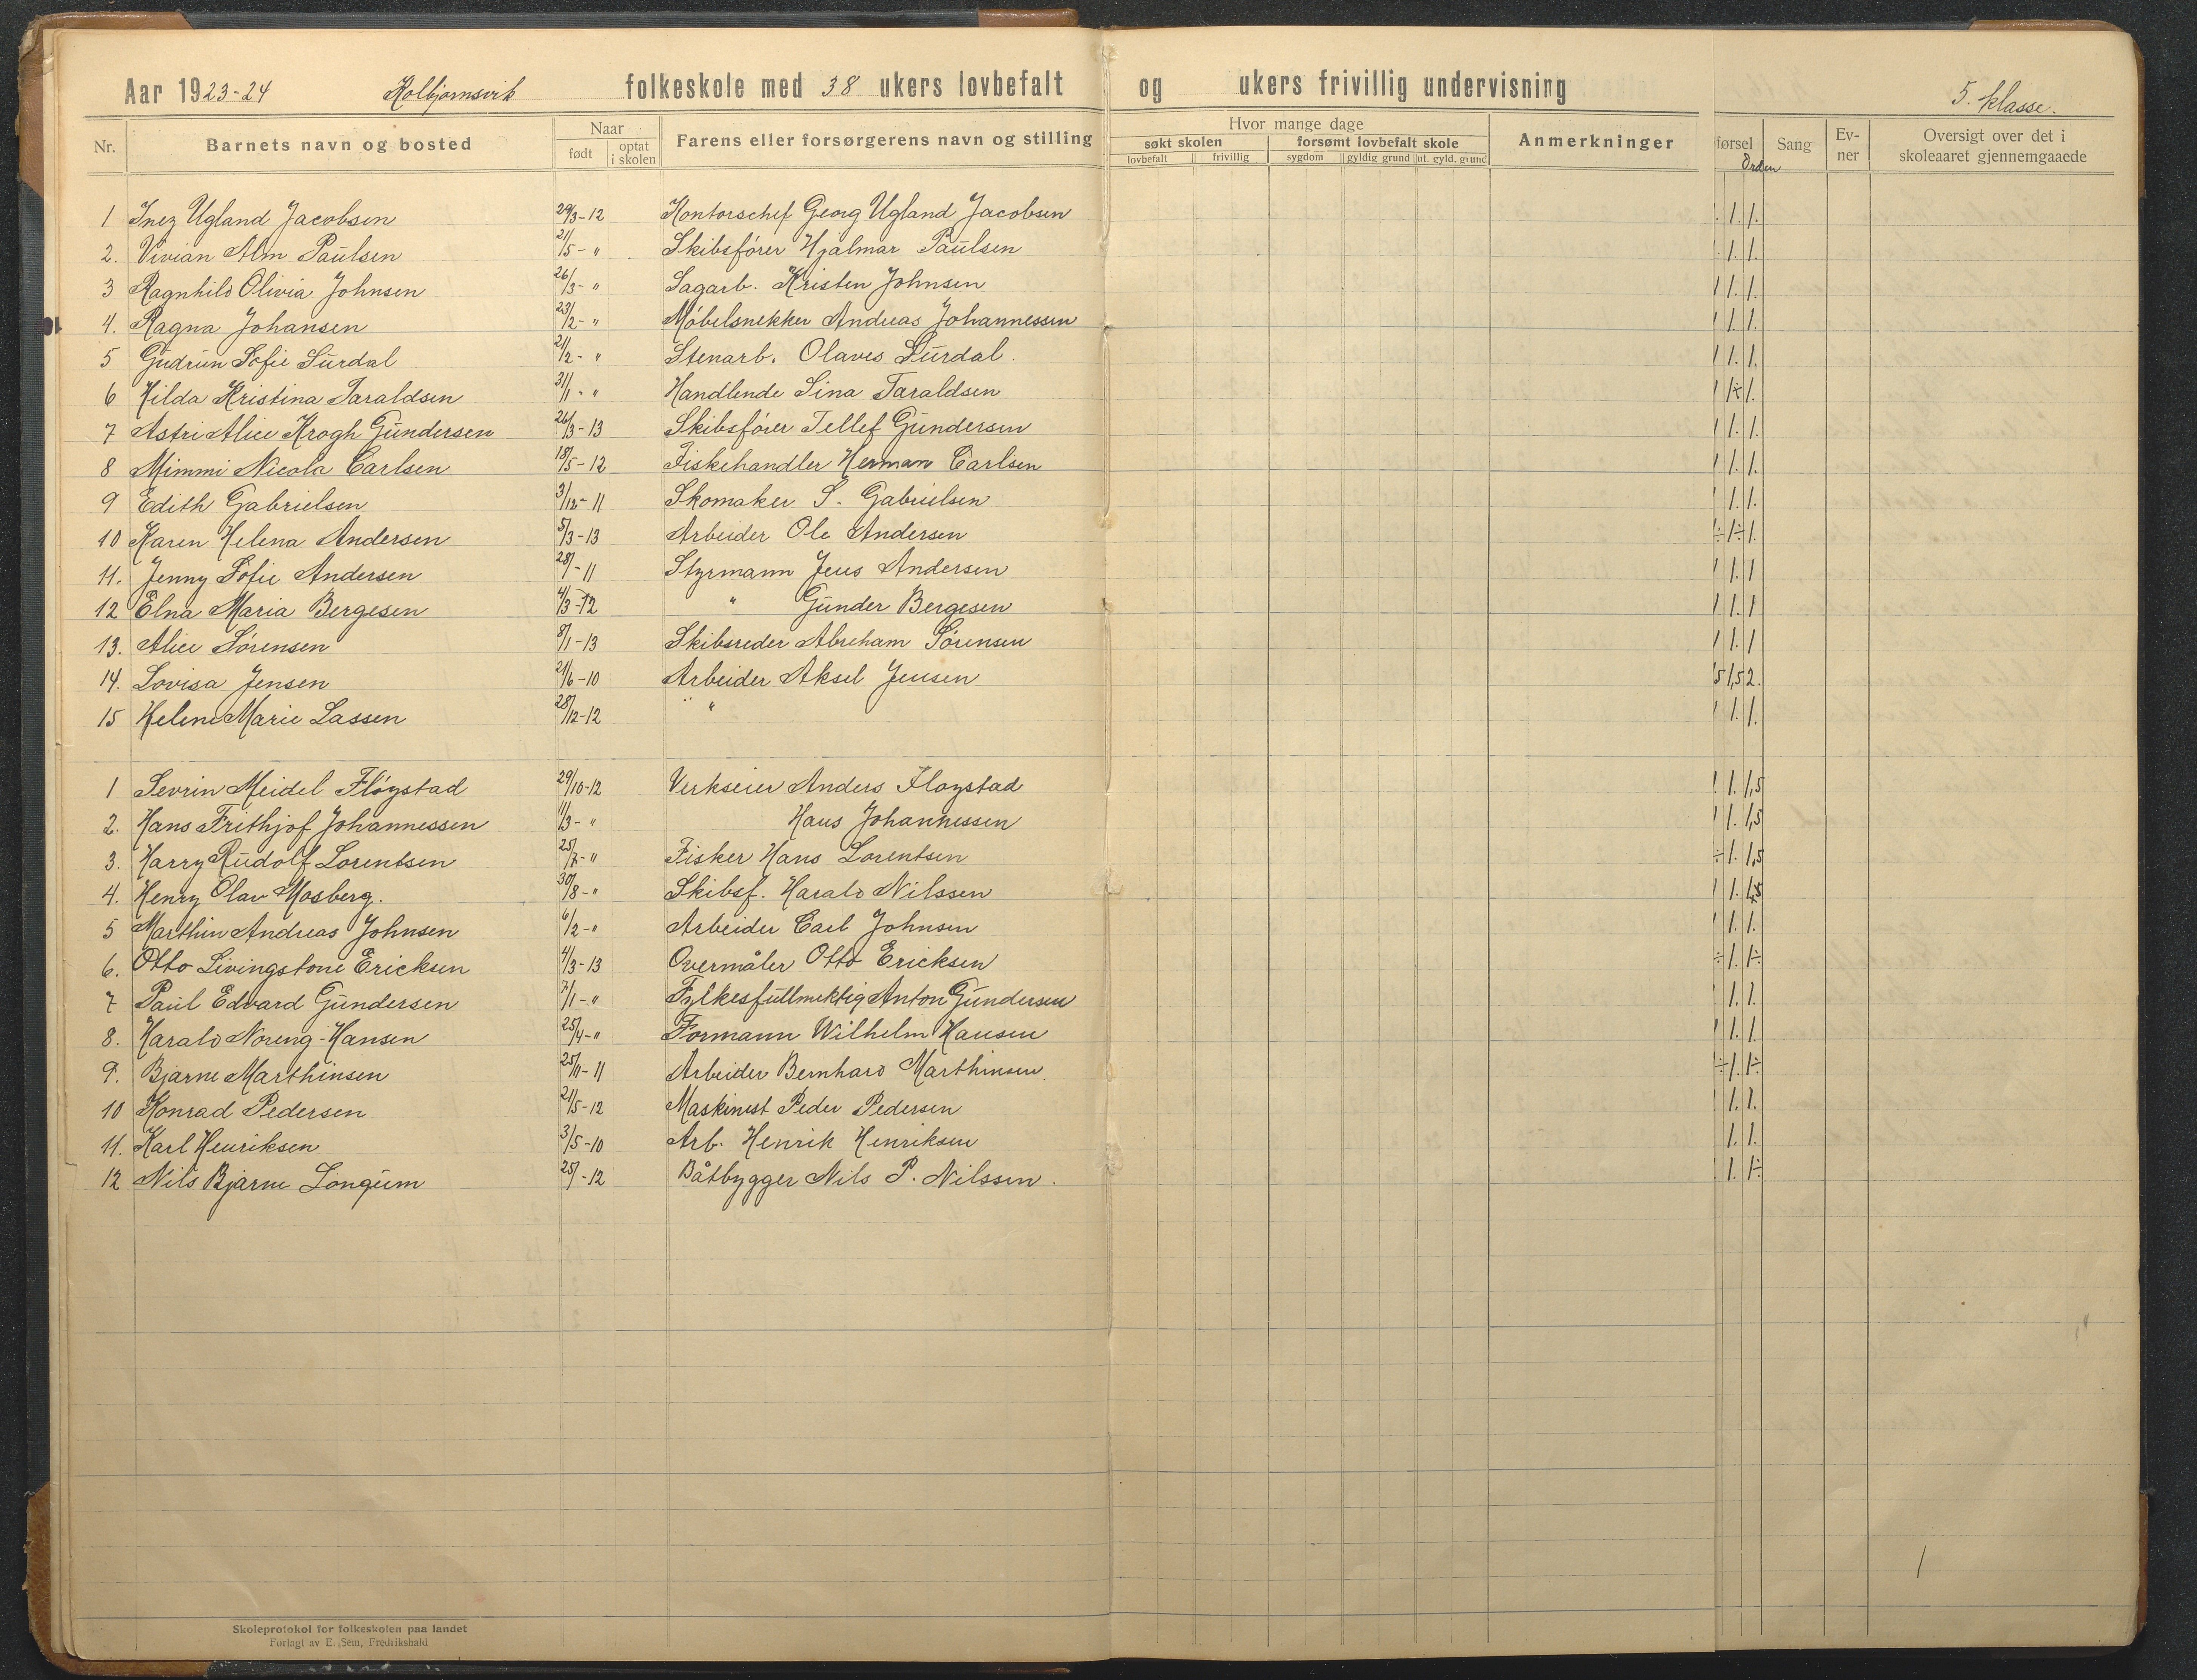 Aar 1923-24 Kolbjørnsvik folkeskole med 38 ukers lovbefalt og ukers frivillig undervisning 5. klasse.
Nr. Barnets navn og bosted Naar født optat i skolen Farens eller forsørgerens navn og stilling Hvor mange dage søkt skolen lovbefalt frivillig forsømt lovbefalt skole sygdom gyldig grund ut. gyld. grund Anmerkninger førsel Orden Sang Ev-ner Oversigt over det i skoleaaret gjennemgaaede
1 Inez Ugland Jacobsen 29/3-12 Kontorschef Georg Ugland Jacobsen 1. 1.
2. Vivian Alm Paulsen 21/5-" Skibsfører Hjalmar Paulsen 1. 1.
3 Ragnhild Olivia Johnsen 26/3-" Sagarb. Kristen Johnsen 1. 1.
4. Ragna Johansen 23/2-" Møbelsnekker Andreas Johannessen 1. 1.
5 Gudrun Sofie Surdal 21/2-" Stenarb. Olaves Surdal. 1. 1.
6 Hilda Kristina Taraldsen 31/1-" Handlende Sina Taraldsen 1÷ 1.
7 Astri Alice Krogh Gundersen 26/3-13 Skibsfører Tellef Gundersen 1. 1.
8 Mimmi Nicola Carlsen 18/5-12 Fiskehandler Herman Carlsen 1. 1.
9 Edith Gabrielsen 3/12-11 Skomaker S. Gabrielsen 1. 1.
10 Karen Helena Andersen 5/3-13 Arbeider Ole Andersen ÷ 1÷ 1.
11. Jenny Sofie Andersen 28/-11 Styrmann Jens Andersen 1. 1
12 Elna Maria Bergesen 4/3-12 " Gunder Bergesen 1. 1
13. Alice Sørensen 8/1-13 Skibsreder Abreham Sørensen 1. 1
14. Lovisa Jensen 21/6-10 Arbeider Aksel Jensen 5 1,5 2.
15 Helene Marie Lassen 28/12-12 " " 1. 1.
1 Sevrin Meidel Fløystad 29/10-12 Verkseier Anders Fløystad 1. 1,5
2. Hans Frithjof Johannessen 11/3-" Hans Johannessen 1. 1,5
3. Harry Rudolf Lorentsen 25/7-" Fisker Hans Lorentsen ÷ 1. 1,5
4. Henry Olav Mosberg. 30/8-" Skibsf. Harald Nilssen 1. 1,5
5 Marthin Andreas Johnsen 6/2-" Arbeider Carl Johnsen 1. 1.
6. Otto Livingstone Ericksen 4/3-13 Overmåler Otto Ericksen ÷ 1. 1÷
7 Paul Edvard Gundersen 7/1-" Fylkesfullmektig Anton Gundersen 1. 1.
8. Harald Noreng-Hansen 25/4-" Formann Wilhelm Hansen 1. 1.
9. Bjarne Marthinsen 25/11-11 Arbeider Bernhard Marthinsen. ÷ 1. 1÷
10 Konrad Pedersen 21/5-12 Maskinist Peder Pedersen 1. 1.
11. Karl Henriksen 3/5-10 Arb. Henrik Henriksen 1. 1.
12 Nils Bjarne Longum 25/-12 Båtbygger Nils P. Nilssen. 1. 1÷
Skoleprotokol for folkeskolen paa landet
Forlagt av E. Sem, Fredrikshald